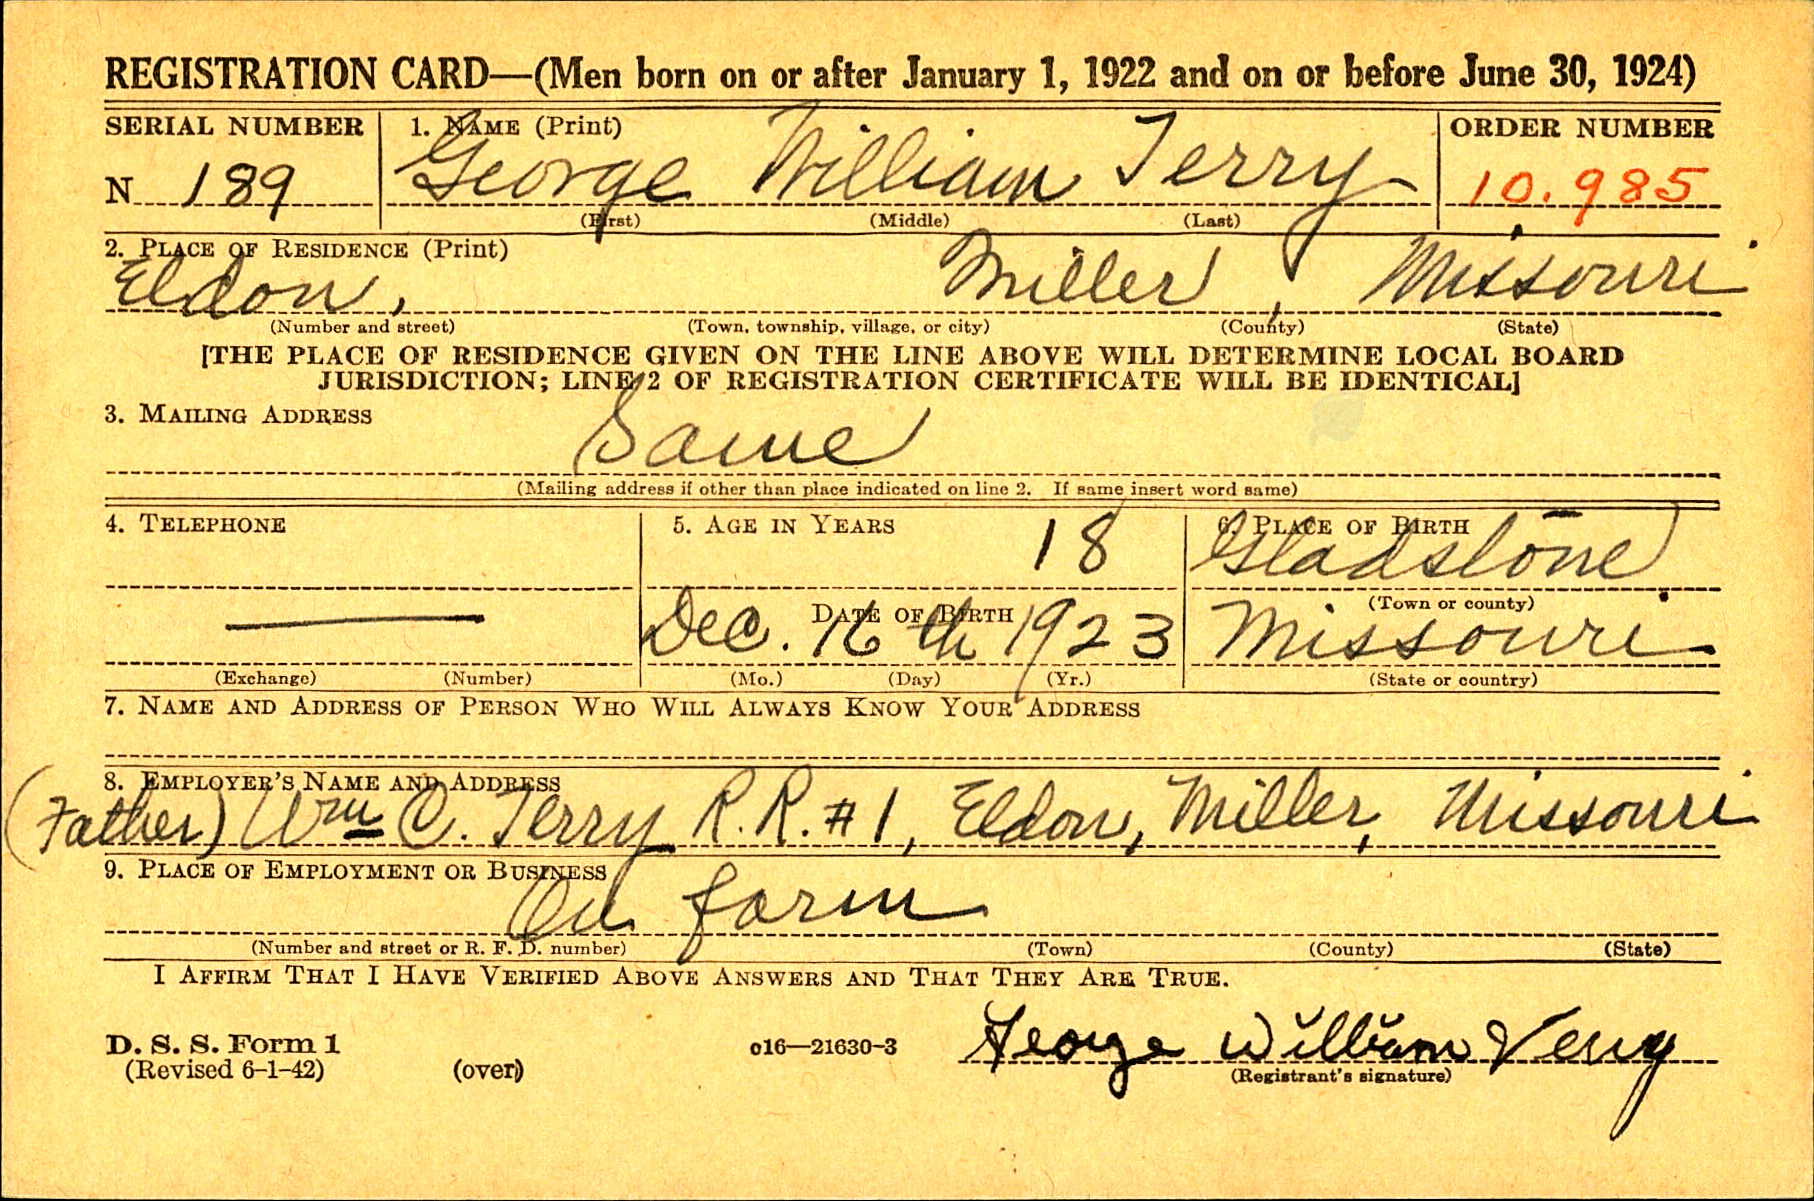 REGISTRATION CARD—(Men born on or after January 1, 1922 and on or before June 30, 1924)
SERIAL NUMBER 1. NAME (Print) ORDER NUMBER
N 189 George William Terry 10.985
(First) (Middle) (Last)
2. PLACE OF RESIDENCE (Print)
Eldon, Miller, Missouri
(Number and street) (Town, township, village, or city) (County) (State)
[THE PLACE OF RESIDENCE GIVEN ON THE LINE ABOVE WILL DETERMINE LOCAL BOARD
JURISDICTION; LINE 2 OF REGISTRATION CERTIFICATE WILL BE IDENTICAL]
3. MAILING ADDRESS
Same
(Mailing address if other than place indicated on line 2. If same insert word same)
4. TELEPHONE 5. AGE IN YEARS 6. PLACE OF BIRTH
18 Gladstone
DATE OF BIRTH (Town or county)
Dec. 16 th 1923 Missouri
(Exchange) (Number) (Mo.) (Day) (Yr.) (State or country)
7. NAME AND ADDRESS OF PERSON WHO WILL ALWAYS KNOW YOUR ADDRESS
8. EMPLOYER'S NAME AND ADDRESS
(Father) Wm C. Terry R.R. #1, Eldon, Miller, Missouri
9. PLACE OF EMPLOYMENT OR BUSINESS
On farm
(Number and street or R. F. D. number) (Town) (County) (State)
I AFFIRM THAT I HAVE VERIFIED ABOVE ANSWERS AND THAT THEY ARE TRUE.
D. S. S. Form 1
(Revised 6-1-42) (over) c16—21630-3 George William Terry
(Registrant's signature)